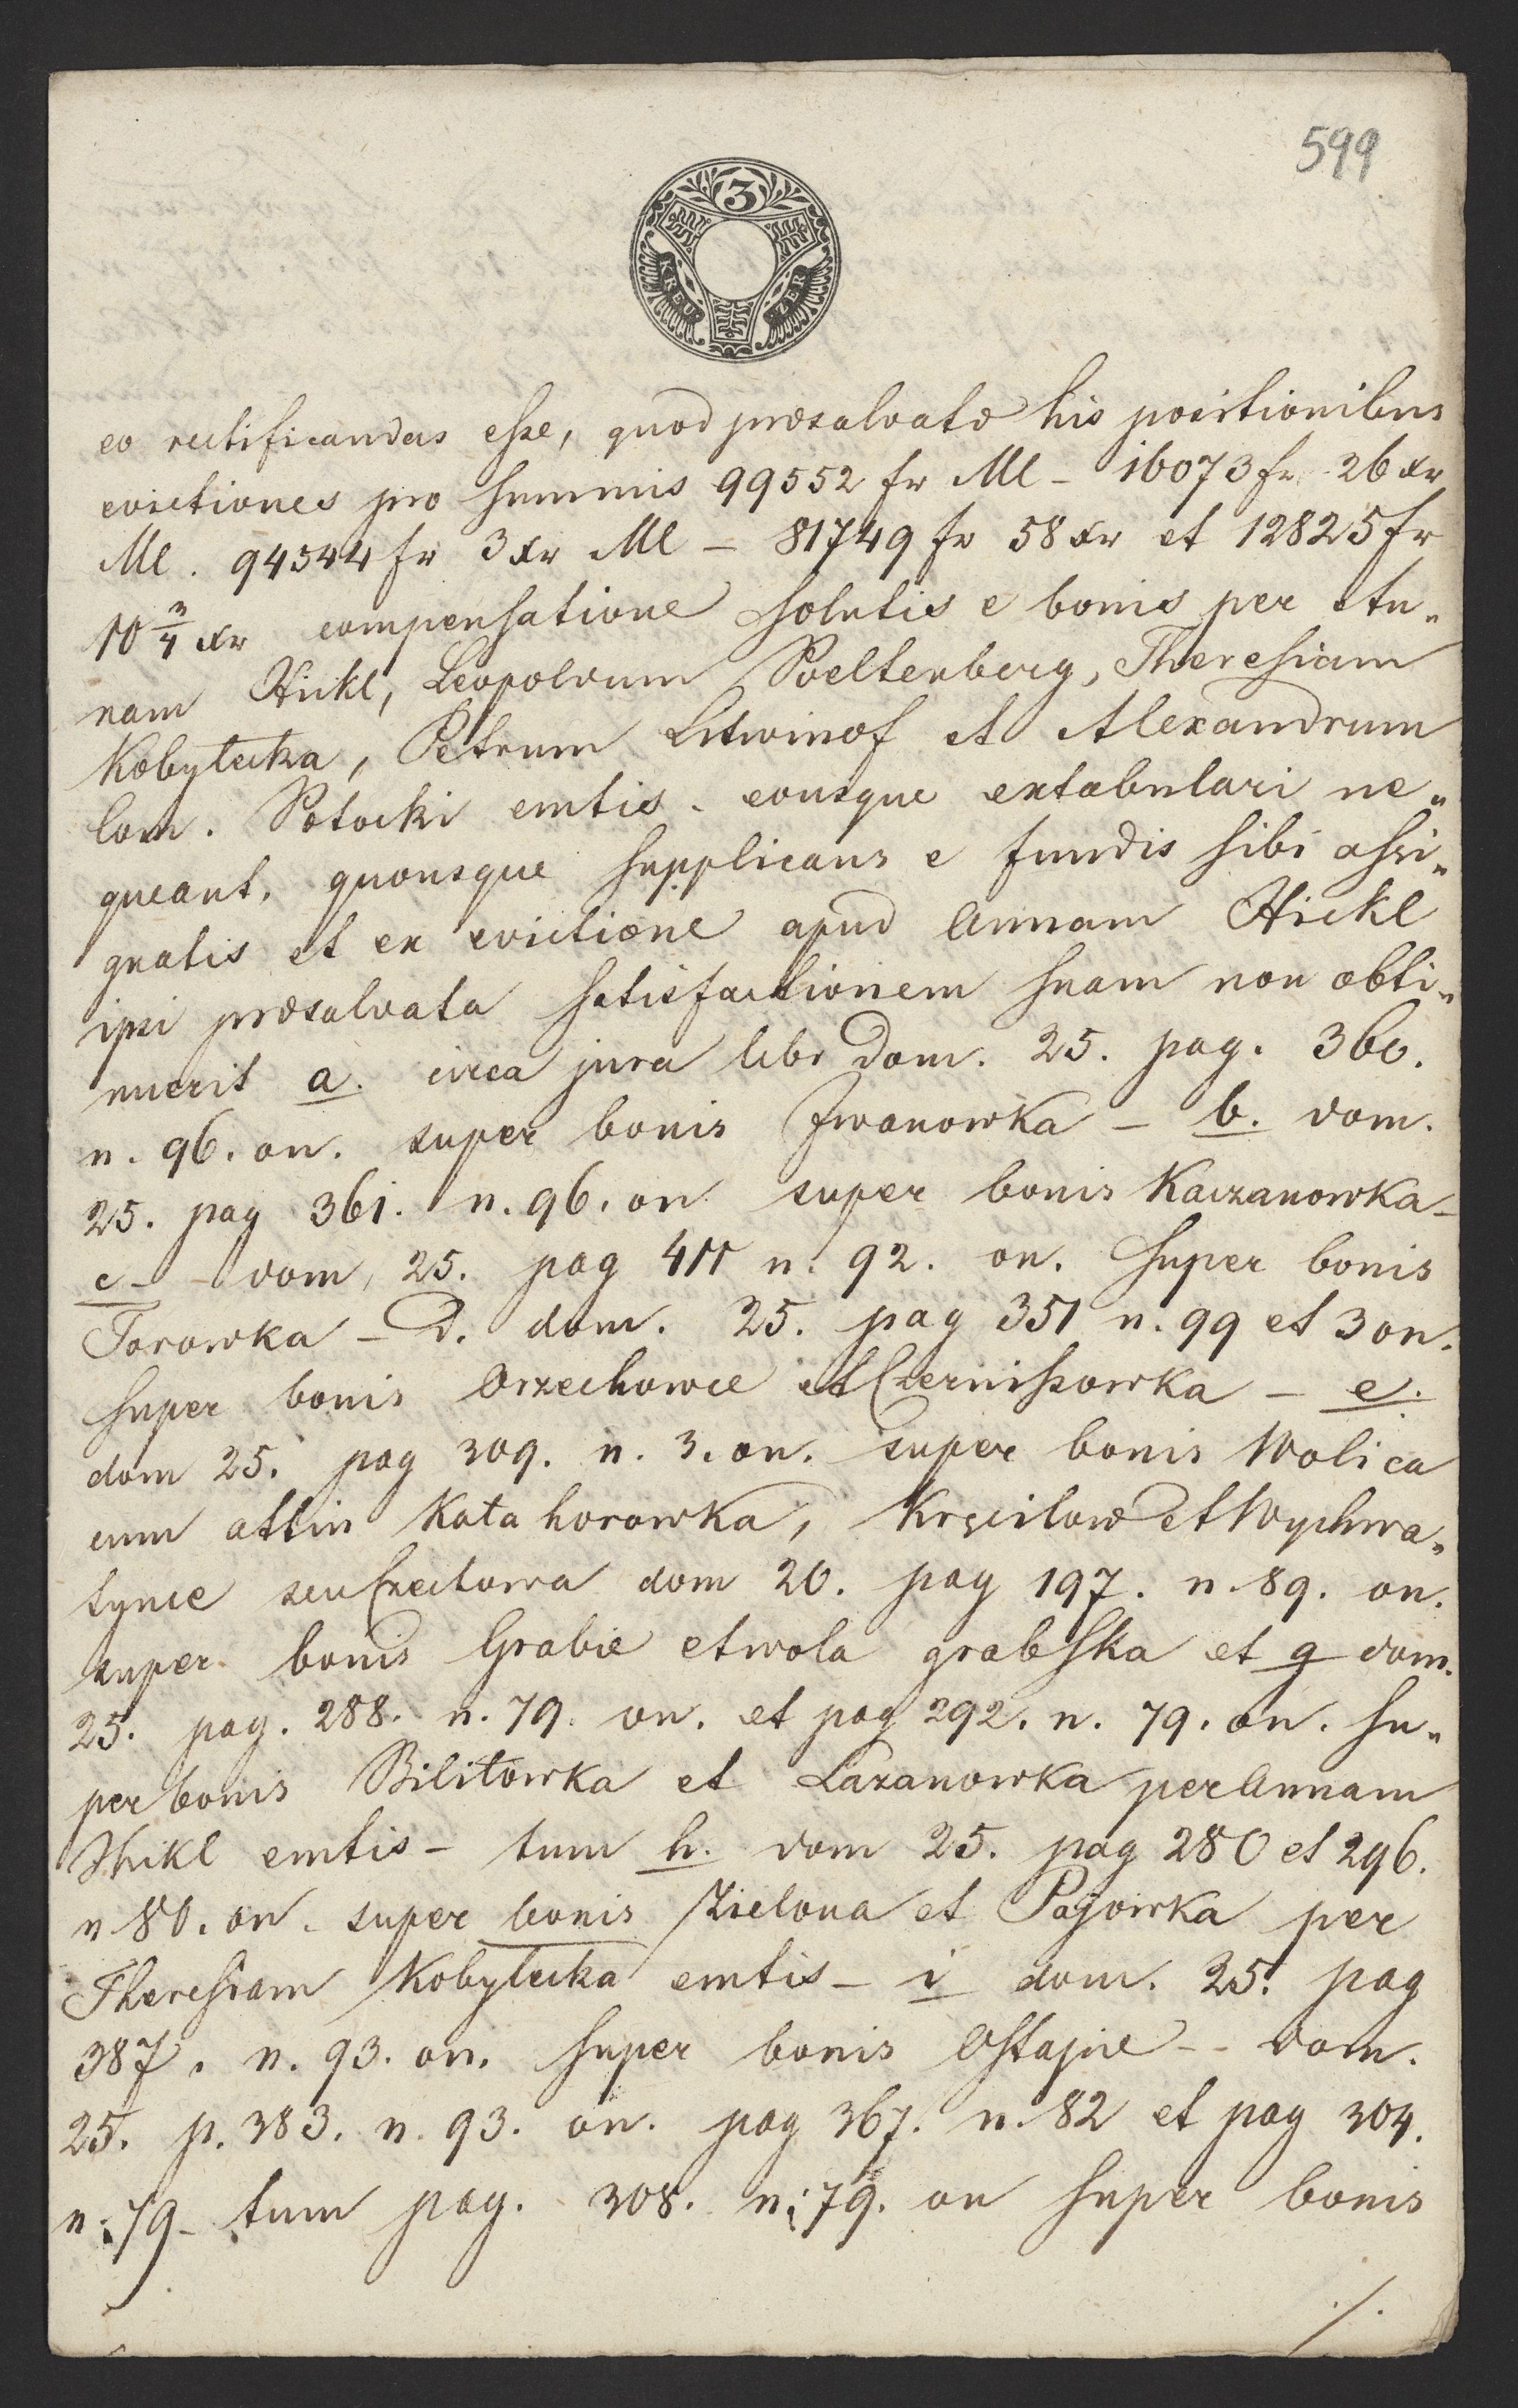 599
3
KREU ZER
eo rectificandas esse, quod præsalvatæ his positionibus
evictiones pro summis 99552 fr Mc - 16073 fr. 26 xr
Mc. 94544 fr 3 xr Mc - 81749 fr 58 xr et 12825 fr
10 3/4 xr compensatione solutis e bonis per An„
nam Hickl, Leopoldum Poeltenberg, Theresiam
Kobylecka, Petrum Litwinof et Alexandrum
Com. Potocki emtis - eousque extabulari ne„
queant, quousque supplicans e fundis sibi assi„
gnatis et ex evictione apud Annam Hickl
ipsi præsalvata satisfactionem suam non obti„
nuerit a. circa jura libr Dom. 25. pag. 360.
n. 96. on. super bonis Iwanowka - b. dom.
25. pag 361. n. 96. on super bonis Kaczanowka -
c - dom, 25. pag 411 n. 92. on. super bonis
Torowka - d. dom. 25. pag 351 n. 99 et 3 on.
super bonis Orzechowce et Czernissowka - e.
dom 25. pag 309. n. 3. on. super bonis Wolica
cum attin Kata horowka, Kręcilow et Wychwa„
tynce seu Czeczlowa dom 20. pag 197. n. 89. on.
super bonis Grabie et wola grabska et g dom.
25. pag. 288. n. 79. on. et pag 292. n. 79. on. su„
per bonis Bilitowka et Lazanowka per Annam
Hikl emtis - tum h. dom 25. pag 280 et 296.
n 80. on. super bonis Zielona et Pajowka per
Theresiam Kobylecka emtis - i dom. 25. pag
387. n. 93. on. super bonis Ostapie - - dom.
25. p. 383. n. 93. on. pag 367. n. 82 et pag 304.
n. 79 - tum pag. 308. n. 79. on super bonis
./.